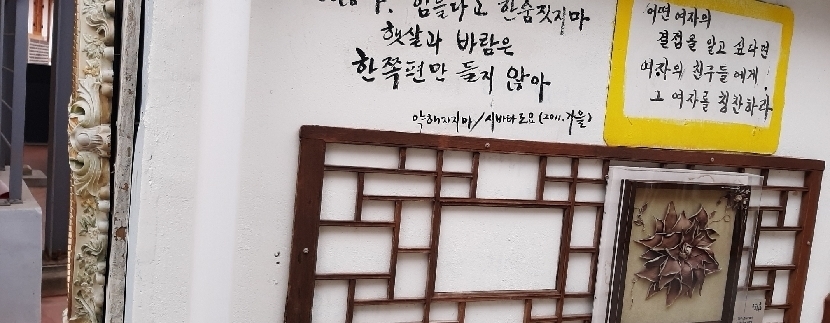 힘들다고 한숨짓지마
햇살과 바람은
한쪽편만 들지 않아
약해지지마/시바타도요(2011.가을)
어떤 여자의
결점을 알고 싶다면
여자의 친구들에게
그 여자를 칭찬하라